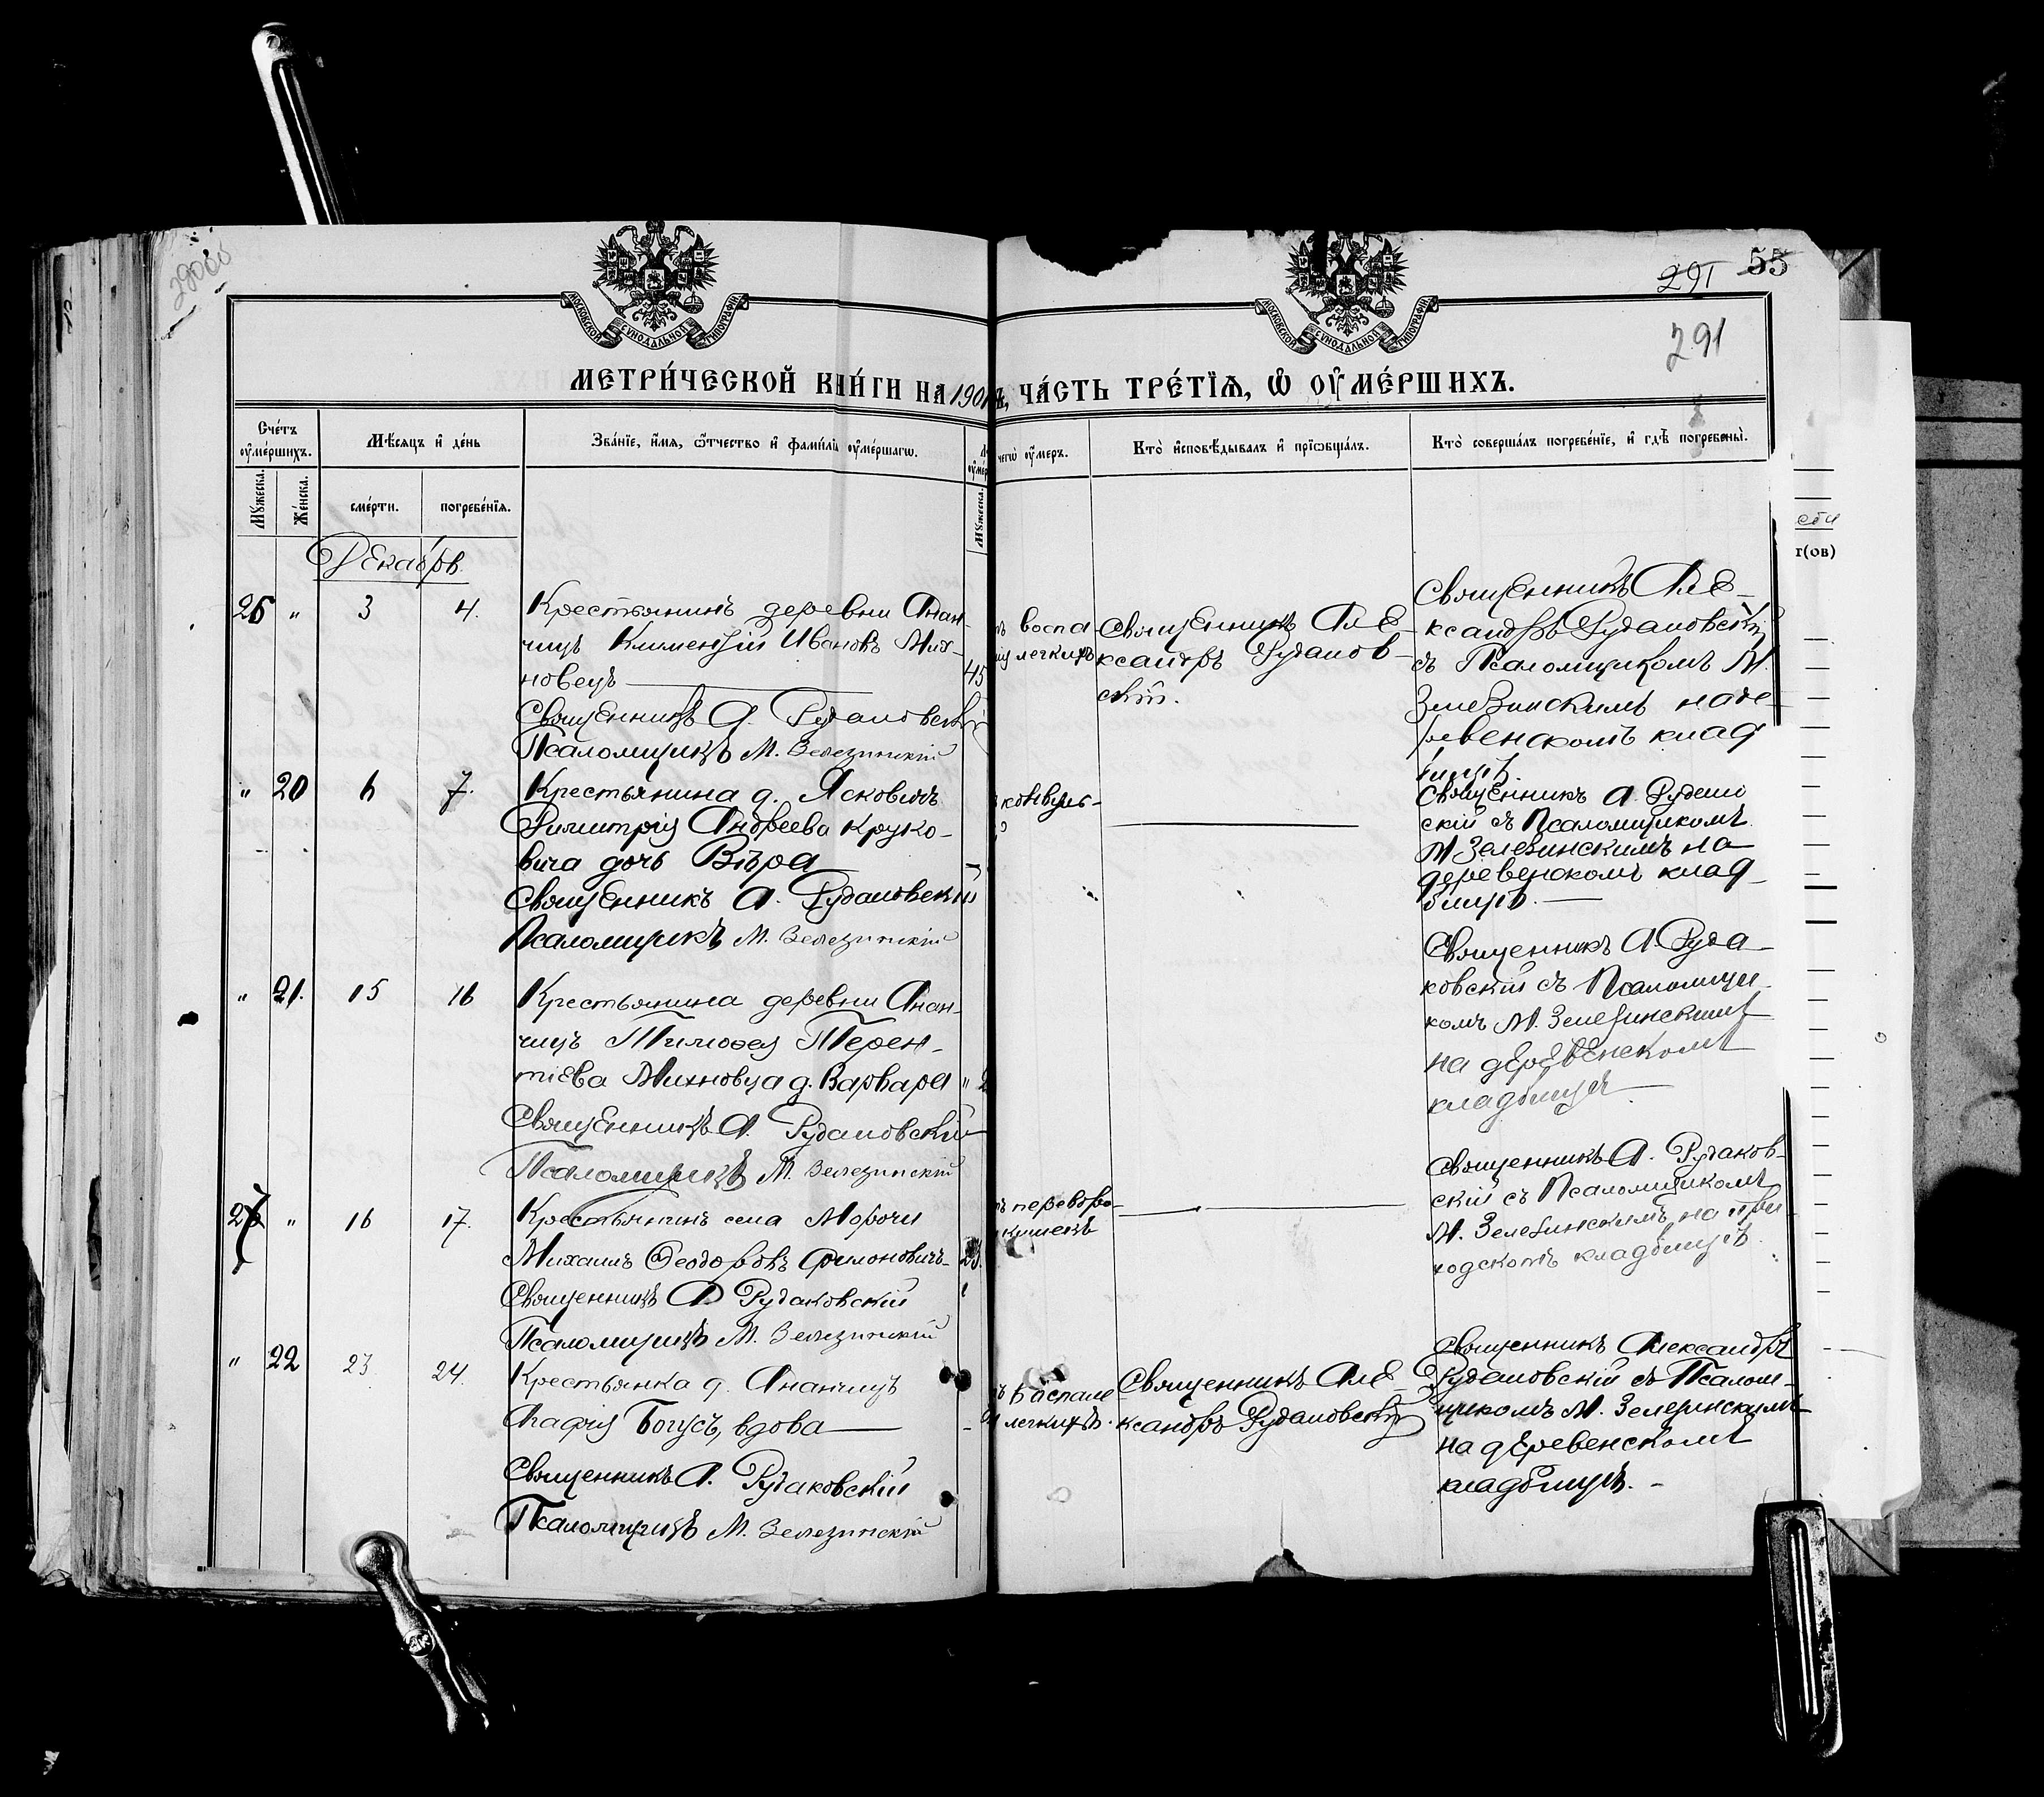 29006
55
291
291
МОСКОВСКОЙ СѴНОДАЛЬНОЙ ТИПОГРАФІИ
МОСКОВСКОЙ СѴНОДАЛЬНОЙ ТИПОГРАФІИ
МЕТРИ́ЧЕСКОЙ КНИ́ГИ НА 1901 ЧА́СТЬ ТРЕ́ТІѦ, Ѡ ОУМЕ́РШИХЪ.
Сче́тъ оуме́ршихъ.
Мꙋжеска.
Же́нска.
Мѣ́сѧцъ и де́нь
сме́рти.
погребе́нїѧ.
Зва́нїе, и́мѧ, ѻ́тчество и фами́лїѧ оуме́ршагѡ.
Мꙋжеска.
чегѡ̀ оу́меръ.
Кто̀ и҆сповѣ́дывалъ и҆ прїѡбща́лъ.
Кто̀ соверша́лъ погребе́нїе, и҆ гдѣ̀ погребены̀.
Декабрь.
26 " 3 4.
Крестьянинъ деревни Анан-
чицъ Климентій Ивановъ Мих-
новецъ
45
Священникъ А. Рудаковскій
Псаломщикъ М. Зелезинскій
воспа
легкихъ
Священникъ Але-
ксандръ Рудаков-
скій.
Священникъ Але-
ксандръ Рудаковскій
съ Псаломщикомъ М.
Зелезинскимъ на де-
ревенскомъ клад
бищѣ.
" 20 6 7.
Крестьянина д. Ясковичъ
Димитрія Андреева Круко-
вича дочь Вѣра
Священникъ А. Рудаковскій
Псаломщикъ М. Зелезинскій
конвуль-
Священникъ А. Рудако
скій съ Псаломщикомъ
М Зелезинскимъ на
деревенскомъ клад-
бищѣ.
" 21. 15 16
Крестьянина деревни Анан-
чицъ Тимоѳея Терен-
тіева Михновца д. Варвара " 2
Священникъ А. Рудаковскій
Псаломщикъ М. Зелезинскій
Священникъ А. Руда-
ковскій съ Псаломщи-
комъ М. Зелезинскимъ
на деревенскомъ
кладбищѣ
27 " 16 17.
Крестьянинъ села Морочи
Михаилъ Ѳеодоровъ Филоновичъ-
Священникъ А. Рудаковскій
Псаломщикъ М. Зелезинскій
переворо-
кишекъ
Священникъ А. Рудаков-
скій съ Псаломщикомъ
М. Зелезинскимъ на при
ходскомъ кладбищѣ.
" 22 23 24.
Крестьянка д. Ананчицъ
Агафія Богусъ, вдова
Священникъ А. Рудаковскій
Псаломщикъ М. Зелезинскій
воспале
легкихъ.
Священникъ Але-
ксандръ Рудаковскій
Священникъ Александръ
Рудаковскій съ Псалом-
щикомъ М. Зелезинскимъ
на деревенскомъ
кладбищѣ. -
г(ов)